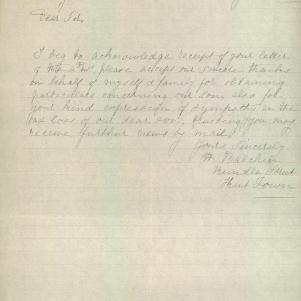 Dear Sir,
I beg to acknowledge receipt of your letter
of please accept our sincere thanks
on behalf of myself & family for obtaining
particulars concerning our son, also for
your kind expression of sympathy in the
sad loss of our dear son, trusting you may
receive further news by mail.
Yours Sincerely
Street
Town